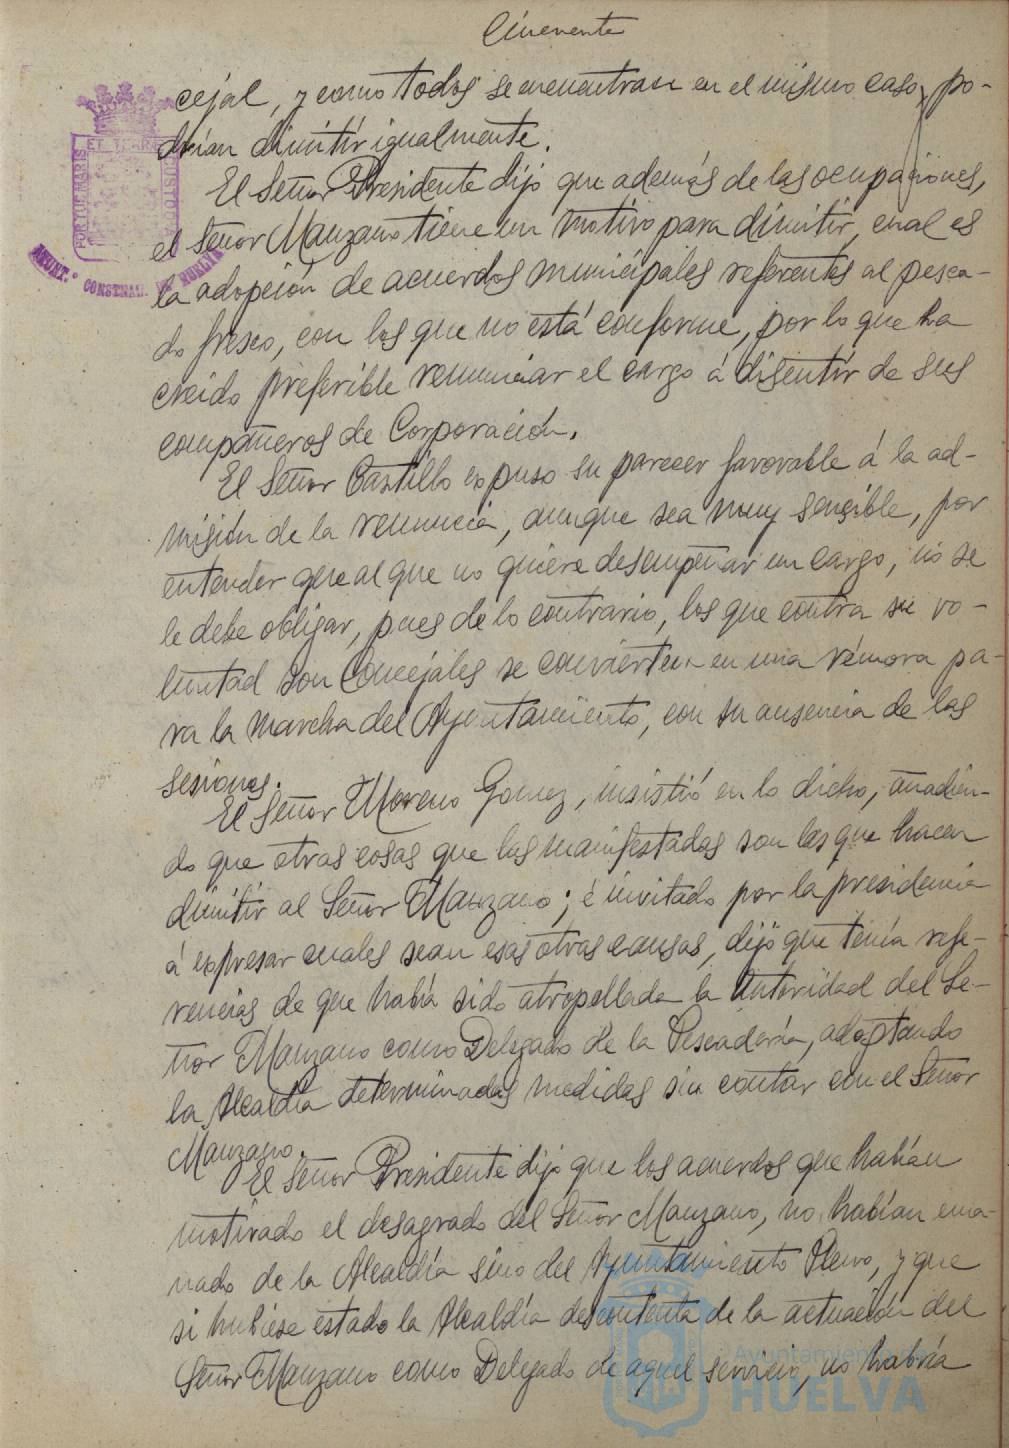 Cincuenta
cejal, y como todos se encuentran en el mismo caso, po-
drían dimitir igualmente.
El Señor Presidente dijo que además de las ocupaciones,
el Señor Manzano tiene un motivo para dimitir, cual es
la adopción de acuerdos municipales referentes al pesca-
do fresco, con los que no está conforme, por lo que ha
creido preferible renunciar el cargo á disentir de sus
compañeros de Corporación.
El Señor Castillo expuso su parecer favorable á la ad-
misión de la renuncia, aunque sea muy sensible, por
entender que al que no quiere desempeñar un cargo, no se
le debe obligar, pues de lo contrario, los que contra su vo-
luntad son Concejales se convierten en una rémora pa-
ra la marcha del Ayuntamiento, con su ausencia de las
sesiones.
El Señor Moreno Gomez, insistió en lo dicho, añadien-
do que otras cosas que las manifestadas son las que hacen
dimitir al Señor Manzano; é invitado por la presidencia
á expresar cuales sean esas otras causas, dijo que tenía refe-
rencias de que había sido atropellada la autoridad del Se-
ñor Manzano como Delegado de la Pescadería, adoptando
la Alcaldía determinadas medidas sin contar con el Señor
Manzano.
El Señor Presidente dijo que los acuerdos que habían
motivado el desagrado del Señor Manzano, no habían ema-
nado de la Alcaldía sino del Ayuntamiento Pleno, y que
si hubiese estado la Alcaldía descontenta de la actuación del
Señor Manzano como Delegado de aquel servicio, no habría
PORTUS MARIS
ET TERRAE
CUSTODIA
AYUNT.º CONSTNAL. DE HUELVA
Ayuntamiento de
HUELVA